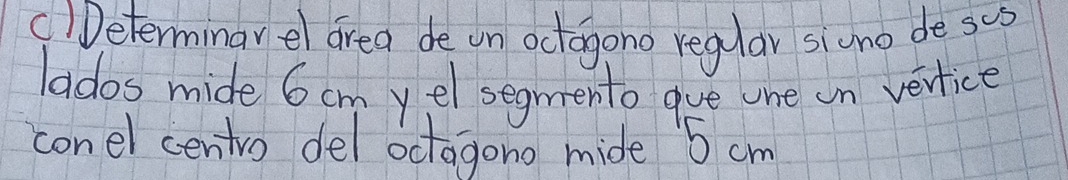 c) Determinar el área de un octágono regular si uno de sus
lados mide 6 cm y el segmento que une un vértice
con el centro del octágono mide 5 cm